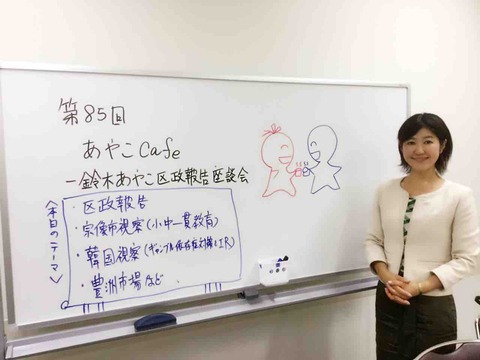 第85回
あやこCafe
ー鈴木あやこ区政報告座談会
〈本日のテーマ〉
・区政報告
・宗像市視察(小中一貫教育)
・韓国視察(ギャンブル依存症対策とIR)
・豊洲市場など